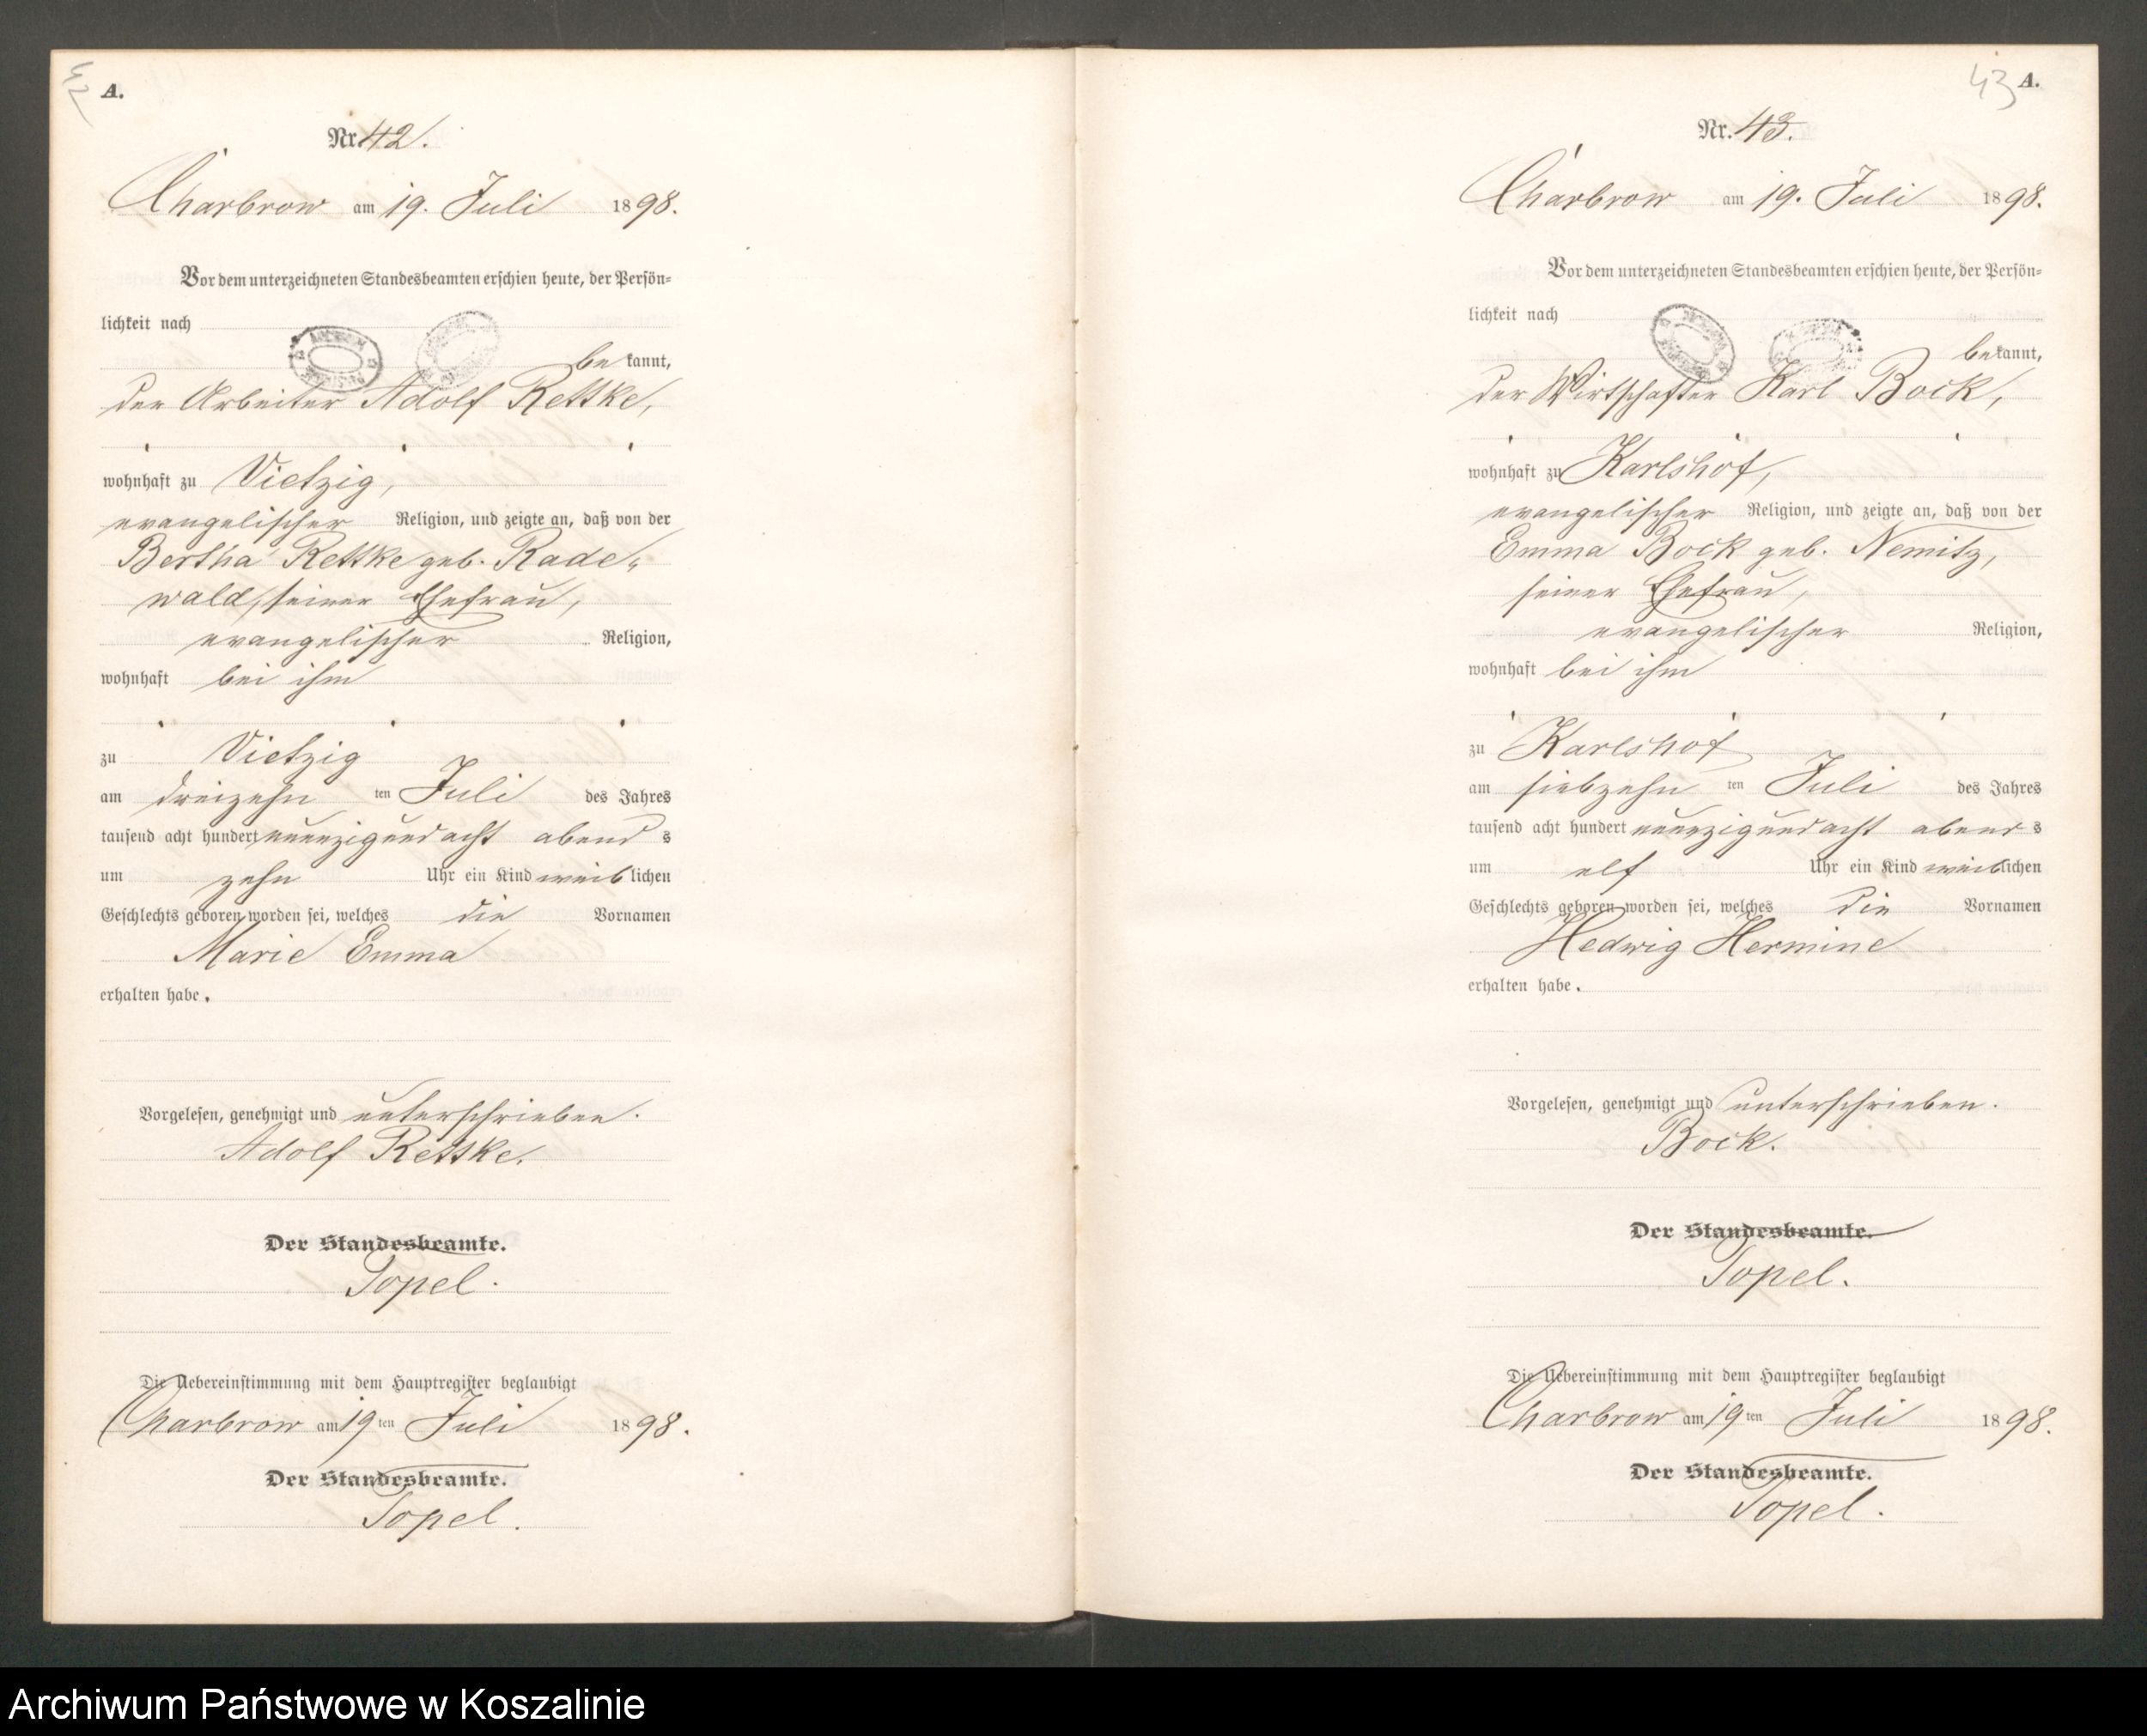 42
A.
Nr. 42.
Charbrow am 19. Juli 1898.
Vor dem unterzeichneten Standesbeamten erschien heute, der Persön-
lichkeit nach
bekannt,
der Arbeiter Adolf Rettke,
wohnhaft zu Vietzig,
evangelischer Religion, und zeigte an, daß von der
Bertha Rettke geb. Rade-
wald, seiner Ehefrau,
evangelischer Religion,
wohnhaft bei ihm
zu Vietzig
am dreizehn ten Juli des Jahres
tausend acht hundert neunzig und acht abends
um zehn Uhr ein Kind weiblichen
Geschlechts geboren worden sei, welches die Vornamen
Marie Emma
erhalten habe.
Vorgelesen, genehmigt und unterschrieben.
Adolf Rettke.
Der Standesbeamte.
Topel.
Die Uebereinstimmung mit dem Hauptregister beglaubigt
Charbrow am 19ten Juli 1898.
Der Standesbeamte.
Topel.
43
A.
Nr. 43.
Charbrow am 19. Juli 1898.
Vor dem unterzeichneten Standesbeamten erschien heute, der Persön-
lichkeit nach
bekannt,
der Wirtschafter Karl Bock,
wohnhaft zu Karlshof,
evangelischer Religion, und zeigte an, daß von der
Emma Bock geb. Nemitz,
seiner Ehefrau,
evangelischer Religion,
wohnhaft bei ihm
zu Karlshof
am siebzehn ten Juli des Jahres
tausend acht hundert neunzig und acht abends
um elf Uhr ein Kind weiblichen
Geschlechts geboren worden sei, welches die Vornamen
Hedwig Hermine
erhalten habe.
Vorgelesen, genehmigt und unterschrieben.
Bock.
Der Standesbeamte.
Topel.
Die Uebereinstimmung mit dem Hauptregister beglaubigt
Charbrow am 19ten Juli 1898.
Der Standesbeamte.
Topel.
Archiwum Państwowe w Koszalinie